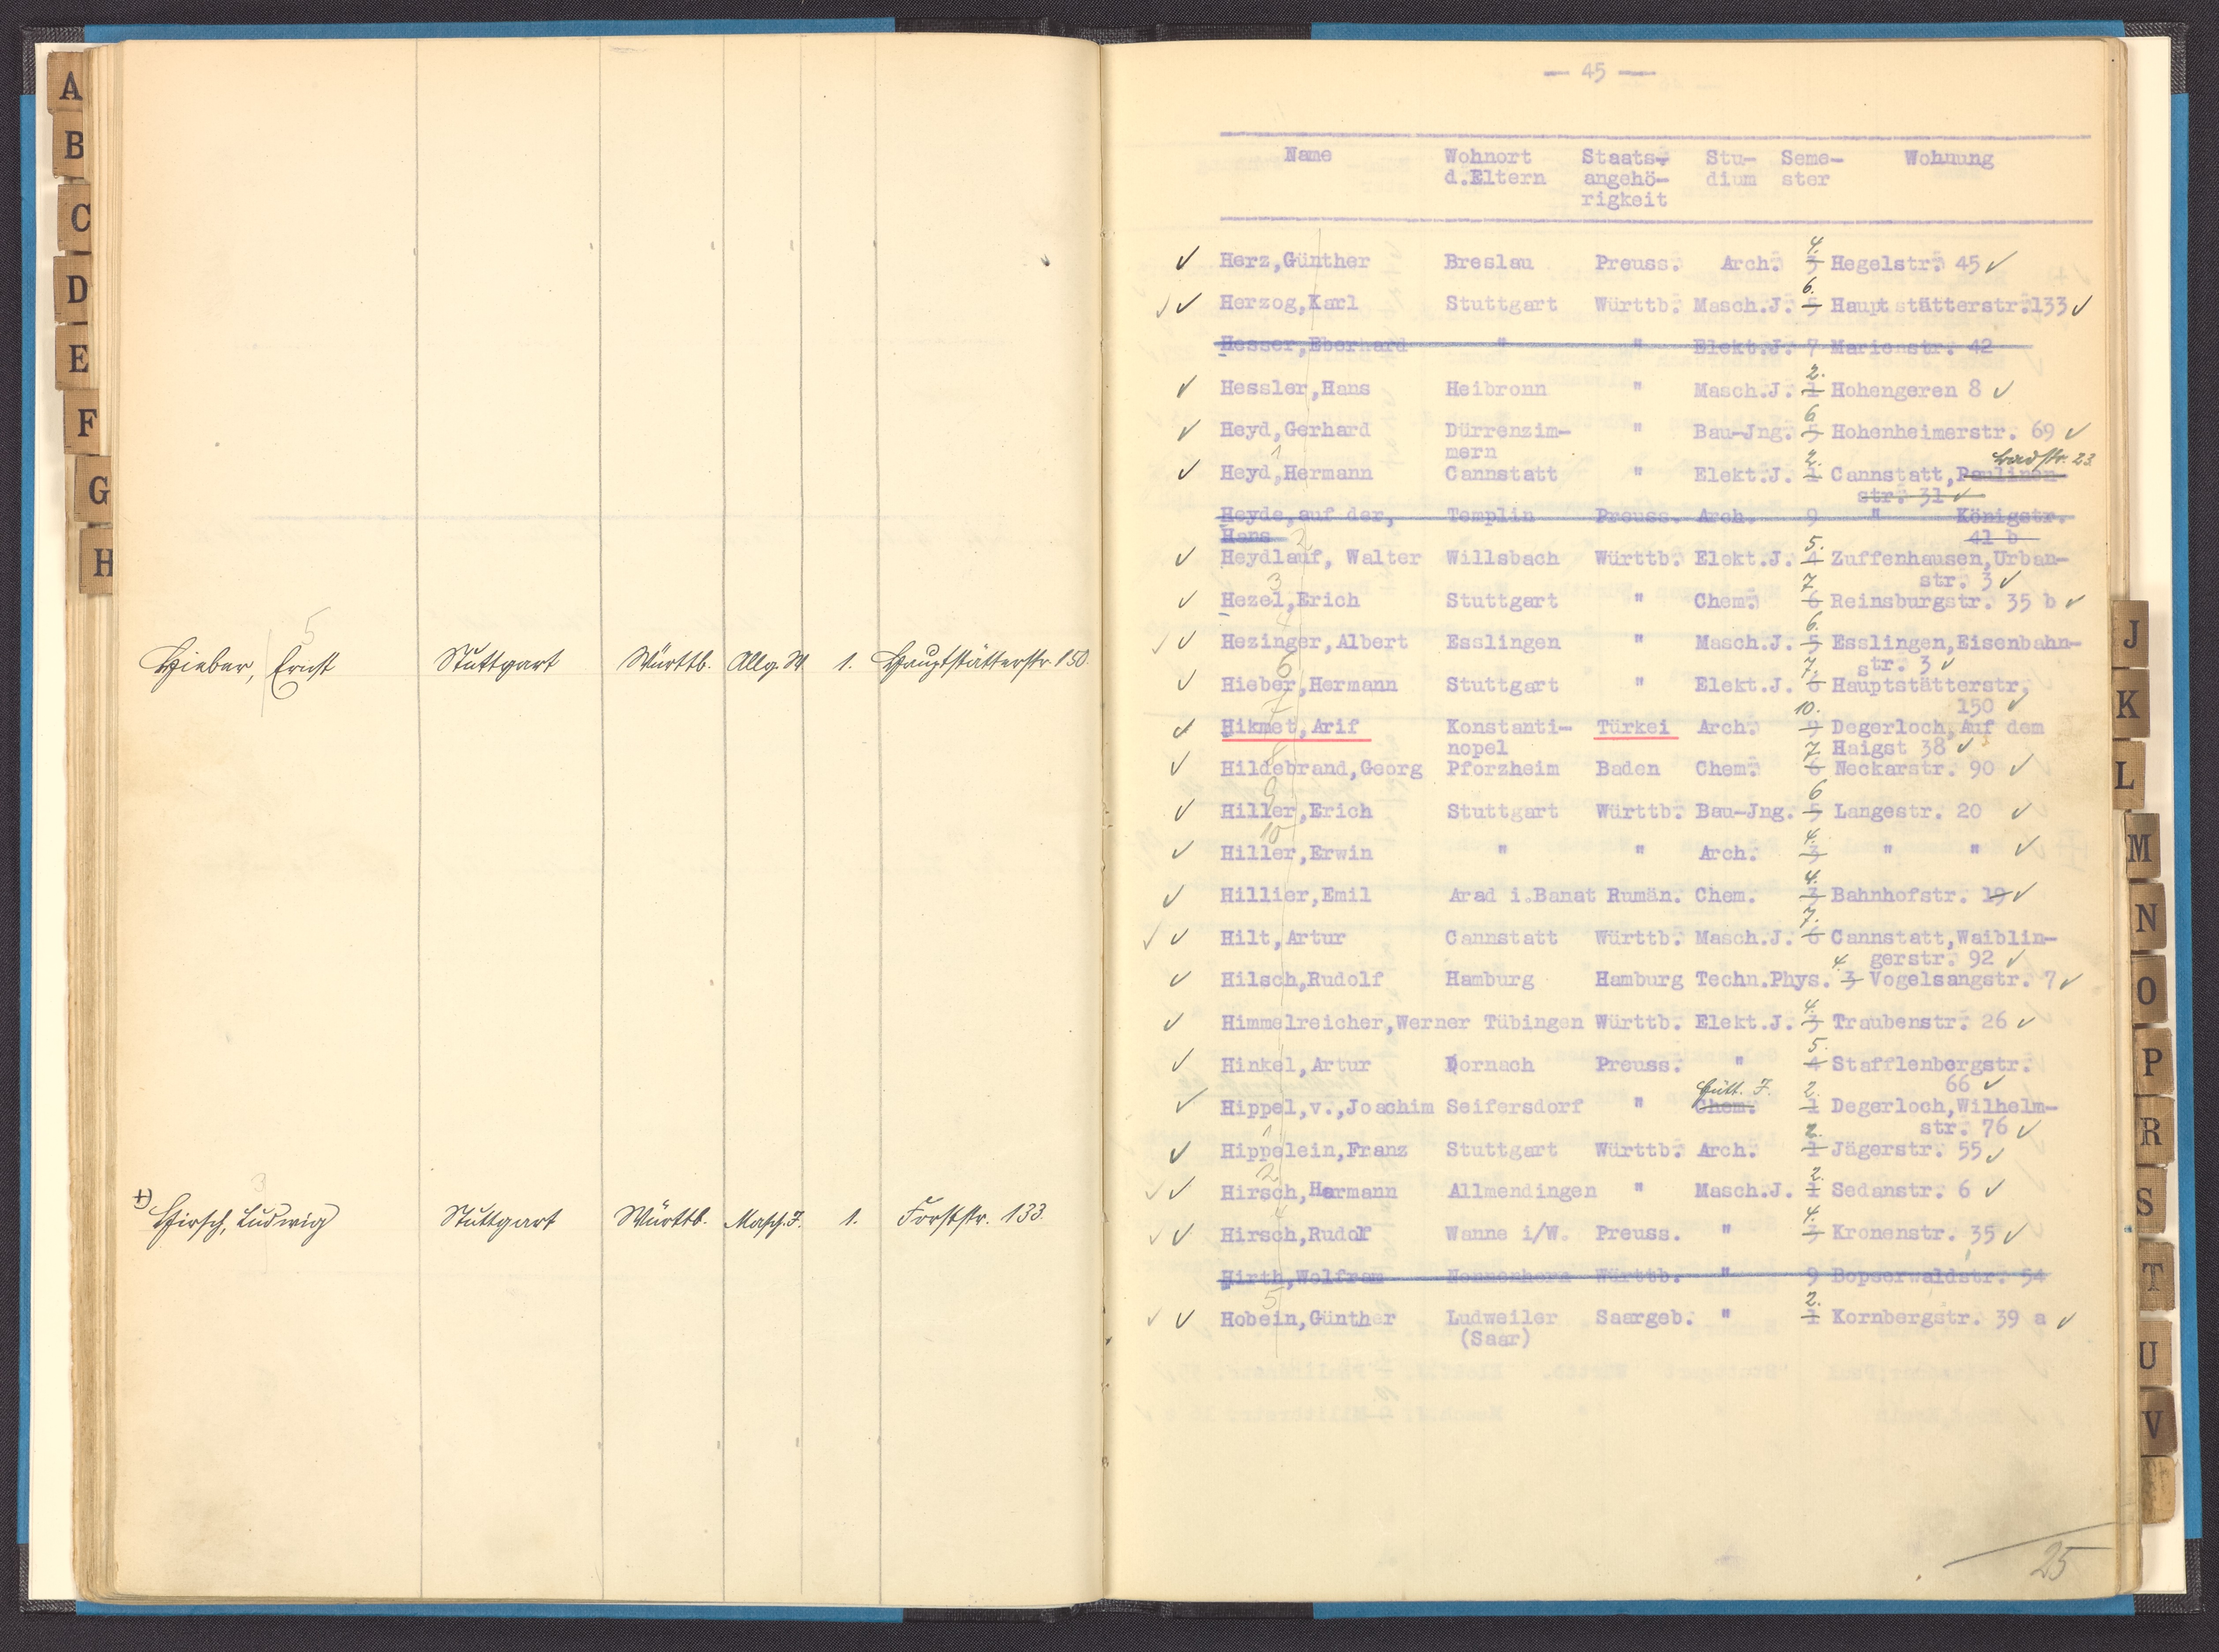 A
B
C
D
E
F
G
H
5
Hieber, Ernst Stuttgart Württb. Allg. W. 1. Hauptstätterstr. 150.
3
+) Hirsch, Ludwig Stuttgart Württb. Masch. J. 1. Forststr. 133.
— 45 —
Name Wohnort Staats- Stu- Seme- Wohnung
d.Eltern angehö- dium ster
rigkeit
4.
Herz,Günther Breslau Preuss. Arch. 3 Hegelstr. 45
6.
Herzog,Karl Stuttgart Württb. Masch.J. 5 Hauptstätterstr.133
Hesser,Eberhard " " Elekt.J. 7 Marienstr. 42
2.
Hessler,Hans Heibronn " Masch.J. 1 Hohengeren 8
6
Heyd,Gerhard Dürrenzim- " Bau-Jng. 5 Hohenheimerstr. 69
1 mern 2. Badstr. 23.
Heyd,Hermann Cannstatt " Elekt.J. 1 Cannstatt,Paulinen-
str. 31
Heyde,auf der, Templin Preuss. Arch. 9 " Königstr.
Hans 2 5. 41 b
Heydlauf, Walter Willsbach Württb. Elekt.J. 4 Zuffenhausen,Urban-
3 7 str. 3
Hezel,Erich Stuttgart " Chem. 6 Reinsburgstr. 35 b
4 6.
Hezinger,Albert Esslingen " Masch.J. 5 Esslingen,Eisenbahn-
6 7. str. 3
Hieber,Hermann Stuttgart " Elekt.J. 6 Hauptstätterstr.
7 10. 150
Hikmet,Arif Konstanti- Türkei Arch. 9 Degerloch,Auf dem
8 nopel 7 Haigst 38
Hildebrand,Georg Pforzheim Baden Chem. 6 Neckarstr. 90
9 6
Hiller,Erich Stuttgart Württb. Bau-Jng. 5 Langestr. 20
10 4.
Hiller,Erwin " " Arch. 3 " "
4.
Hillier,Emil Arad i.Banat Rumän. Chem. 3 Bahnhofstr. 19
7.
Hilt,Artur Cannstatt Württb. Masch.J. 6 Cannstatt,Waiblin-
4. gerstr. 92
Hilsch,Rudolf Hamburg Hamburg Techn.Phys. 3 Vogelsangstr. 7
4.
Himmelreicher,Werner Tübingen Württb. Elekt.J. 3 Traubenstr. 26
5.
Hinkel,Artur Dornach Preuss. " 4 Stafflenbergstr.
Hütt. J. 2. 66
Hippel,v.,Joachim Seifersdorf " Chem. 1 Degerloch,Wilhelm-
1 2. str. 76
Hippelein,Franz Stuttgart Württb. Arch. 1 Jägerstr. 55
2 2.
Hirsch,Hermann Allmendingen " Masch.J. 1 Sedanstr. 6
4 4.
Hirsch,Rudolf Wanne i/W. Preuss. " 3 Kronenstr. 35
Hirth,Wolfram Nonnenhorn Württb. " 9 Bopserwaldstr. 54
5 2.
Hobein,Günther Ludweiler Saargeb. " 1 Kornbergstr. 39 a
(Saar)
25
J
K
L
M
N
O
P
R
S
T
U
V